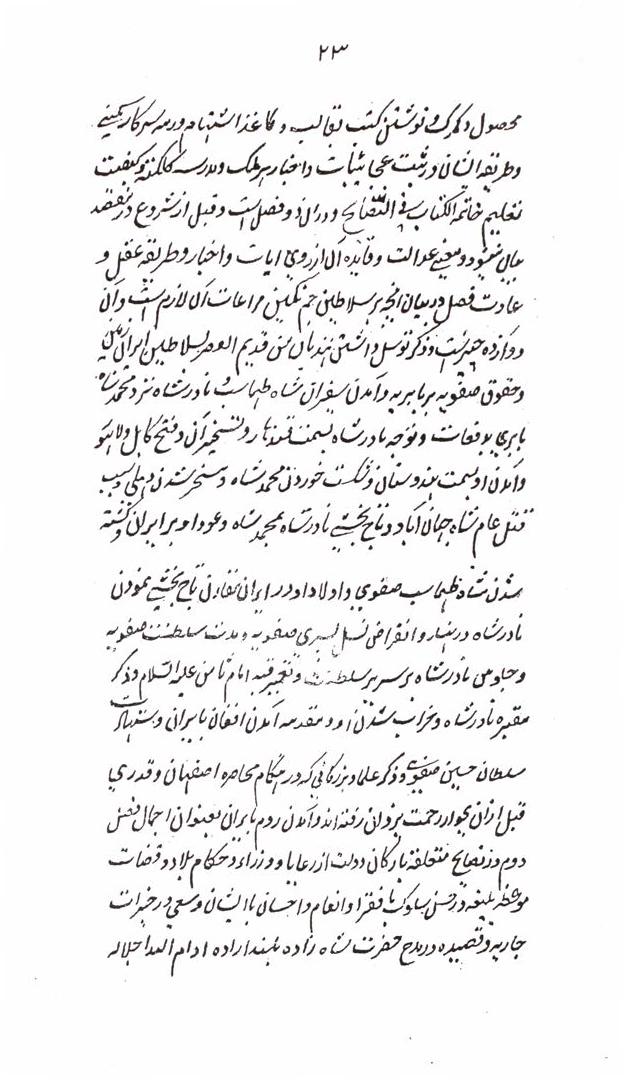 ۲۳
محصول و کمرک و نوشتن کتب و کاغذ اشتهار در سرکار کمپنی
و طریقه ایشان در ثبت عجائبات و اخبار هر ملک و مدرسه کلکته و کیفیت
تعلیم خاتمة الکتاب فی النصایح و دران دو فصل است و قبل از شروع در مقصد
بیان میشود معنی عدالت و فایده آن از روی ایات و اخبار و طریقه عقل و
عادت فصل در بیان انچه بر سلاطین جم نکین مراعات آن لازم است و آن
دوازده چیز است و ذکر توسل داشتن هندیان من قدیم العصر بسلاطین ایران زمین
و حقوق صفویه بر بابریه و آمدن سفیران شاه طهماسب و نادرشاه نزد محمد شاه
بابری بدفعات و توجه نادرشاه بسمت قندهار و تسخیر آن و فتح کابل و لاهور
و آمدن او بسمت هندوستان و شکست خوردن محمد شاه و مسخر شدن دهلی و سبب
قتل عام شاه جهان آباد و تاج بخشی نادرشاه بمحمد شاه و عود او بر ایران و کشته
شدن شاه طهماسب صفوی و اولاد او در ایران مقارن تاج بخشی نمودن
نادرشاه در هند و انقراض نسل پسری صفویه و مدت سلطنت صفویه
و جلوس نادرشاه بر سریر سلطنت و تعمیر قبه امام ثامن علیه السلام و ذکر
مقبره نادرشاه و خراب شدن او و مقدمه آمدن افغان بایران و شهادت
سلطان حسین صفوی و ذکر علما و بزرگانی که در هنگام محاصره اصفهان و قدری
قبل ازان بجوار رحمت یزدان رفته اند و آمدن روم بایران بعنوان اجمال فصل
دوم در نصایح متعلقه بارکان دولت از رعایا و وزراء و حکام بلاد و قضات
موعظه بلیغه در حسن سلوک با فقرا و انعام و احسان با ایشان و سعی در خیرات
جاریه و قصیده در مدح حضرت شاه زاده بلند اراده ادام الله اجلاله